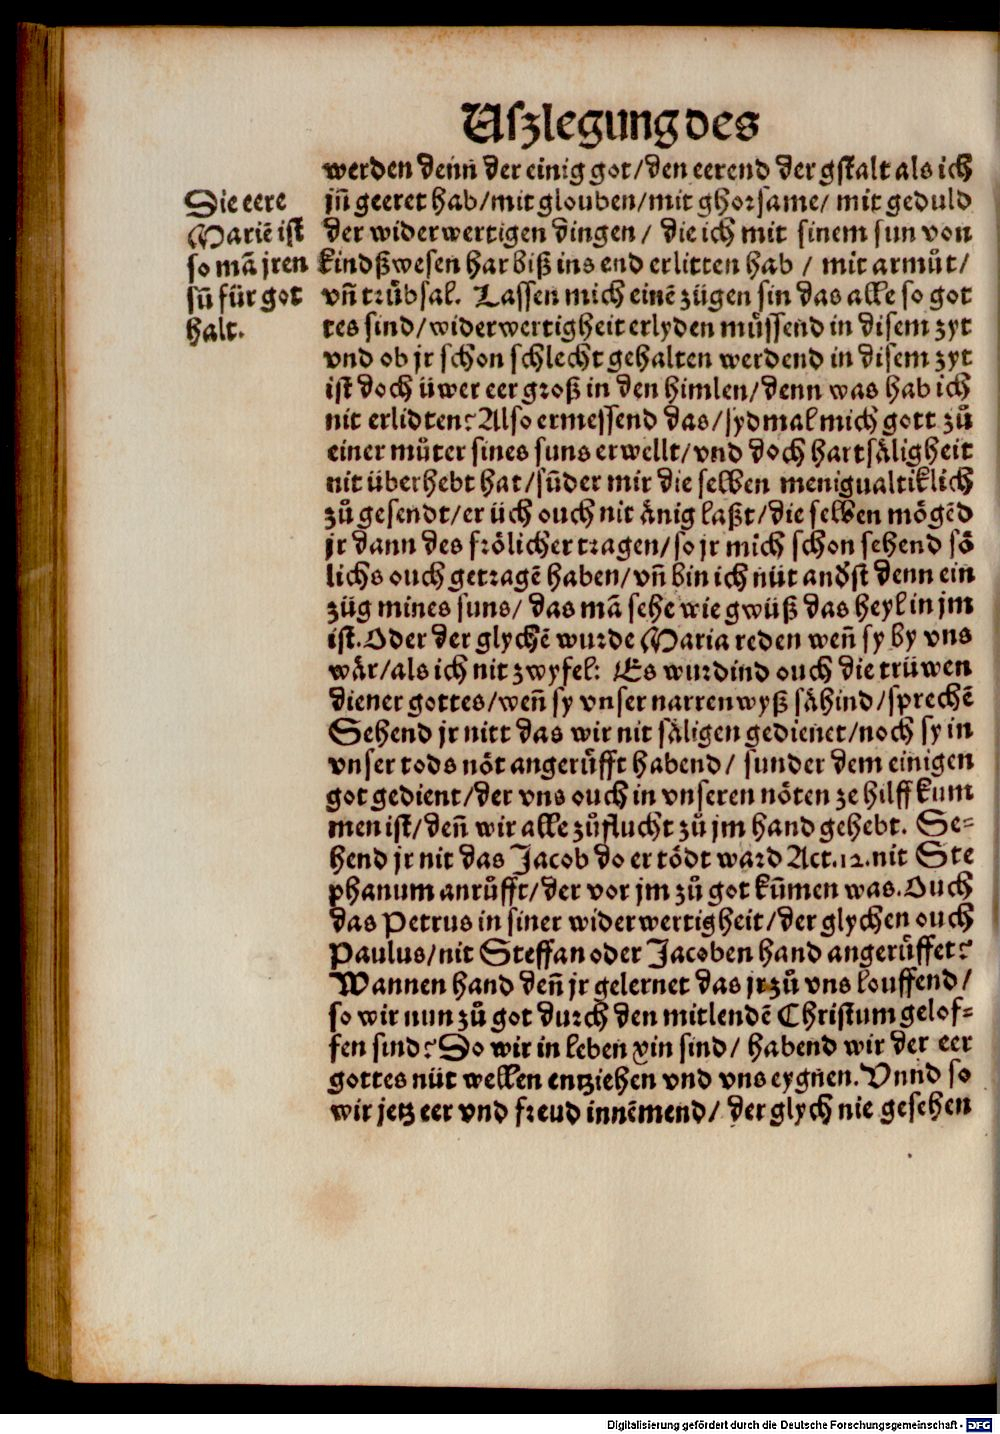 Uſzlegung des
werden denn der einig got/den eerend der gſtalt als ich
jn̄ geeret hab/mit glouben/mit ghorſame/ mit geduld
der widerwertigen dingen/ die ich mit ſinem ſun von
kindßweſen har biß ins end erlitten hab / mit armůt/
vn̄ trübſal. Laſſen mich einē zügen ſin das alle ſo got
tes ſind/widerwertigheit erlyden müſſend in diſem zyt
vnd ob jr ſchon ſchlecht gehalten werdend in diſem zyt
iſt doch üwer eer groß in den himlen/denn was hab ich
nit erlidten? Alſo ermeſſend das/ſydmal mich gott zů
einer můter ſines ſuns erwellt/vnd doch hartſäligheit
nit überhebt hat/ſun̄der mir die ſelben menigualtiklich
zů geſendt/er üch ouch nit änig laßt/die ſelben mögēd
jr dann des frölicher tragen/ſo jr mich ſchon ſehend ſö
lichs ouch getragē haben/vn̄ bin ich nüt andſt denn ein
züg mines ſuns/ das mā ſehe wie gwüß das heyl in jm
iſt. Oder der glychē wurde Maria reden wen̄ ſy by vns
wär/als ich nit zwyfel: Es wurdind ouch die trüwen
diener gottes/wen̄ ſy vnſer narrenwyß ſähind/ſprechē
Sehend jr nitt das wir nit ſäligen gedienet/noch ſy in
vnſer tods nöt angerůfft habend/ ſunder dem einigen
got gedient/der vns ouch in vnſeren nöten ze hilff kum
men iſt/den̄ wir alle zůflucht zů jm hand gehebt. Se⸗
hend jr nit das Jacob do er tödt ward Act.12.nit Ste
phanum anrůfft/der vor jm zů got kum̄en was. Ouch
das Petrus in ſiner widerwertigheit/der glychen ouch
Paulus/nit Steffan oder Jacoben hand angerůffet?
Wannen hand den̄ jr gelernet das jr zů vns louffend/
ſo wir nun zů got durch den mitlendē Chriſtum gelof⸗
fen ſind? So wir in leben xin ſind/ habend wir der eer
gottes nüt wellen entziehen vnd vns eygnen. Vnnd ſo
wir jetz eer vnd freud innēmend/ der glych nie geſehen
Die eere
Mariē iſt
ſo mā jren
ſun̄ für got
halt.
Digitalisierung gefördert durch die Deutsche Forschungsgemeinschaft - DFG